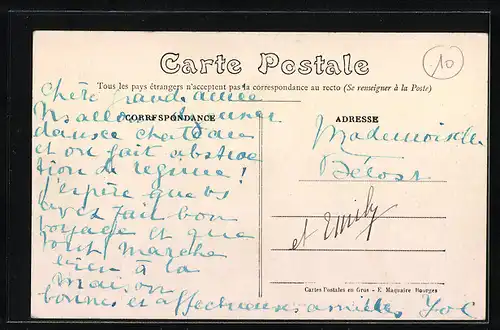 Carte Postale
10
Tous les pays étrangers n'acceptent pas la correspondance au recto (Se renseigner à la Poste)
CORRESPONDANCE
ADRESSE
chère grande amie
Ns allons
danser chez
et on fait abstrac
tion de régime !
J'espère que vs
avez fait bon
voyage et que
tout marche
bien à la
maison
bonnes et affectueuses amitiés
Mademoiselle
Bélost
et Emily
Cartes Postales en Gros - E. Maquaire Bourges